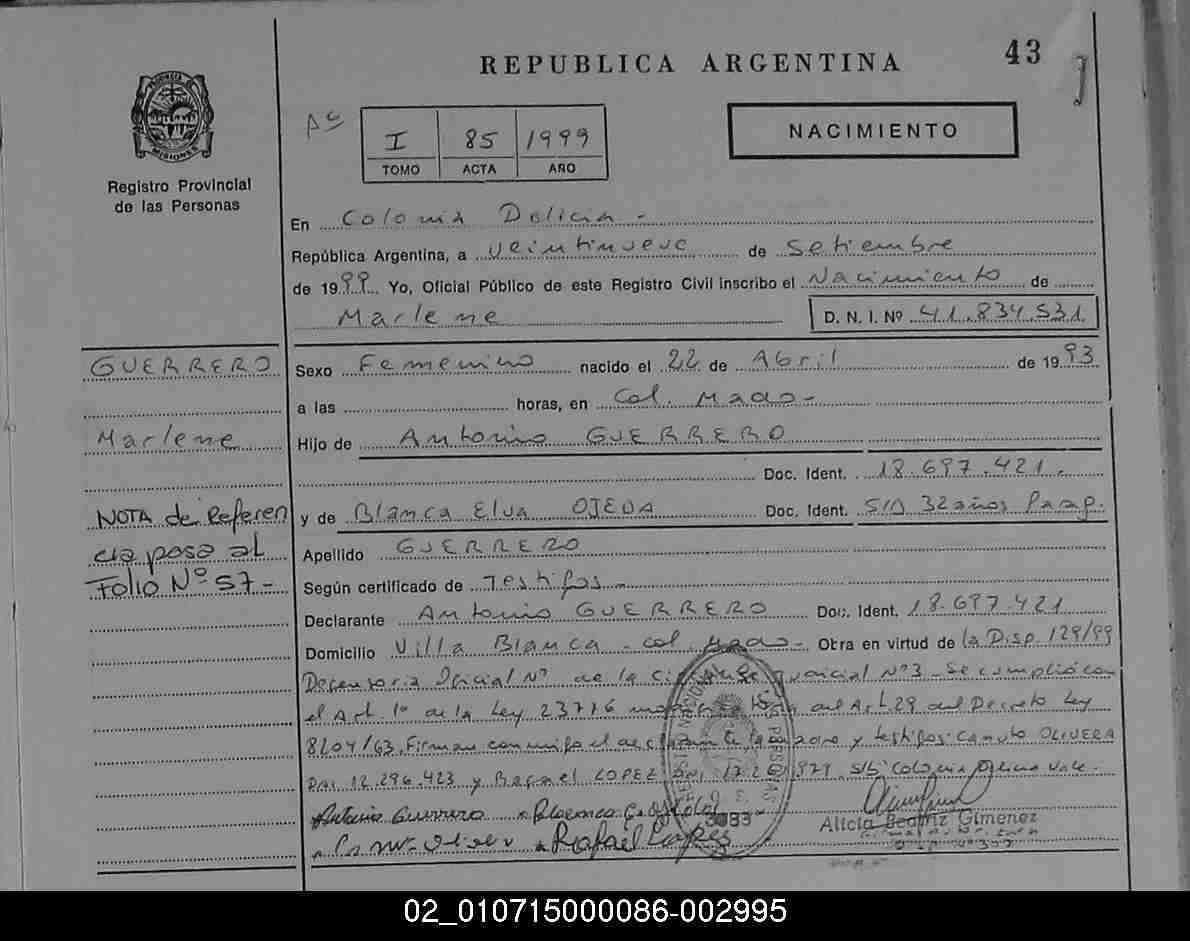 REPUBLICA ARGENTINA
43
Aº
I 85 1999
TOMO ACTA AÑO
NACIMIENTO
MISIONES
Registro Provincial
de las Personas
En Colonia Delicia -
República Argentina, a veintinueve de setiembre
de 1999 Yo, Oficial Público de este Registro Civil inscribo el Nacimiento de
Marlene D. N. I. Nº 41.834.531
GUERRERO
Marlene
NOTA de Referen
cia pasa al
Folio Nº 57 -
Sexo Femenino nacido el 22 de Abril de 1993
a las horas, en Col. Mado -
Hijo de Antonio GUERRERO
Doc. Ident. 18.697.421.
y de Blanca Elva OJEDA Doc. Ident. S/D 32 años Parag.
Apellido GUERRERO
Según certificado de Testigos -
Declarante Antonio GUERRERO Doc. Ident. 18.697.421
Domicilio Villa Blanca - Col. Mado - Otra en virtud de la Disp. 129/99
Defensoria Oficial Nº de la Judicial Nº3 - Se cumplió con
el Art. 1º de la Ley 23776 del Art. 29 del Decreto Ley
8204/63. Firman conmigo el declarante y testigos: Canuto OLIVERA
DNI 12.296.423 y Rafael LOPEZ DNI s/b Colonia Delicia Vale -
Antonio Guerrero
Rafael Lopez
3033
Alicia Beatriz Gimenez
02_010715000086-002995